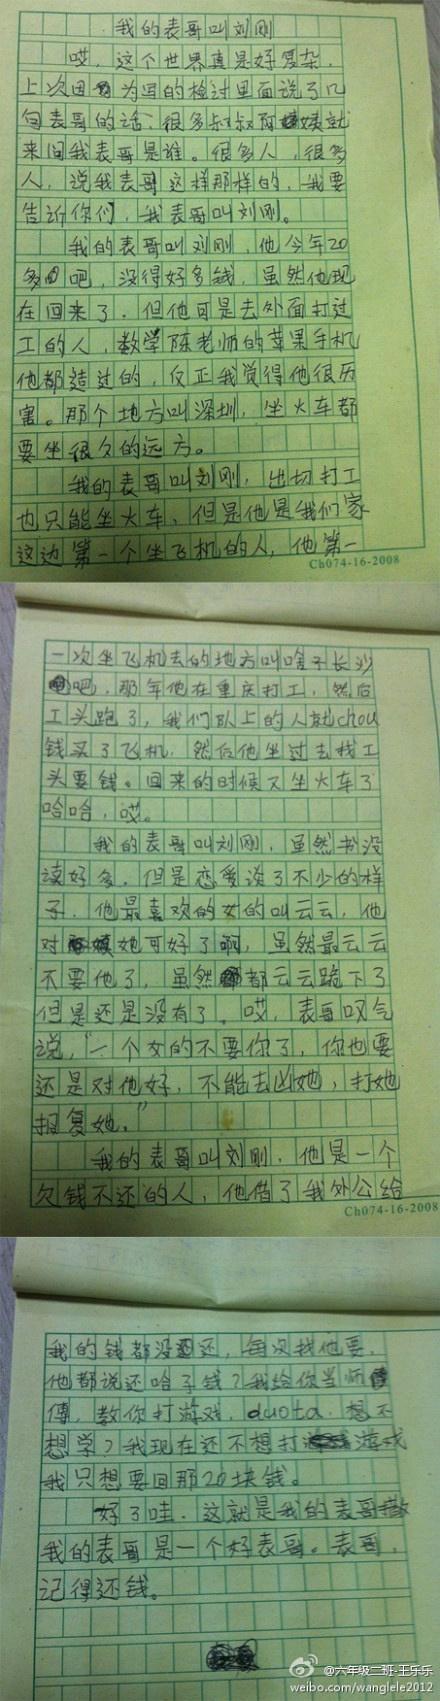 我的表哥叫刘刚
哎，这个世界真是好复杂，
上次因为写的检讨里面说了几
句表哥的话，很多叔叔阿姨就
来问我表哥是谁。很多人，很多
人，说我表哥这样那样的，我要
告诉你们，我表哥叫刘刚。
我的表哥叫刘刚，他今年20
多吧，没得好多钱，虽然他现
在回来了，但他可是去外面打过
工的人，数学陈老师的苹果手机
他都造过的，反正我觉得他很历
害。那个地方叫深圳，坐火车都
要坐很久的远方。
我的表哥叫刘刚，出切打工
也只能坐火车，但是他是我们家
这边第一个坐飞机的人，他第一
Ch074-16-2008
一次坐飞机去的地方叫啥子长沙
吧，那年他在重庆打工，然后
工头跑了，我们队上的人就chou
钱买了飞机，然后他坐过去找工
头要钱。回来的时候又坐火车了
哈哈，哎。
我的表哥叫刘刚，虽然书没
读好多，但是恋爱谈了不少的样
子，他最喜欢的女的叫云云，他
对她可好了啊，虽然最云云
不要他了，虽然都云云跪下了
但是还是没有了。哎，表哥叹气
说，“一个女的不要你了，你也要
还是对他好，不能去凶她，打她
报复她。”
我的表哥叫刘刚，他是一个
欠钱不还的人，他借了我外公给
Ch074-16-2008
我的钱都没还，每次找他要，
他都说还啥子钱？我给你当师
傅，教你打游戏，duota，想不
想学？我现在还不想打游戏
我只想要回那20块钱。
好了哇，这就是我的表哥
我的表哥是一个好表哥。表哥，
记得还钱。
@六年级二班-王乐乐
weibo.com/wanglele2012